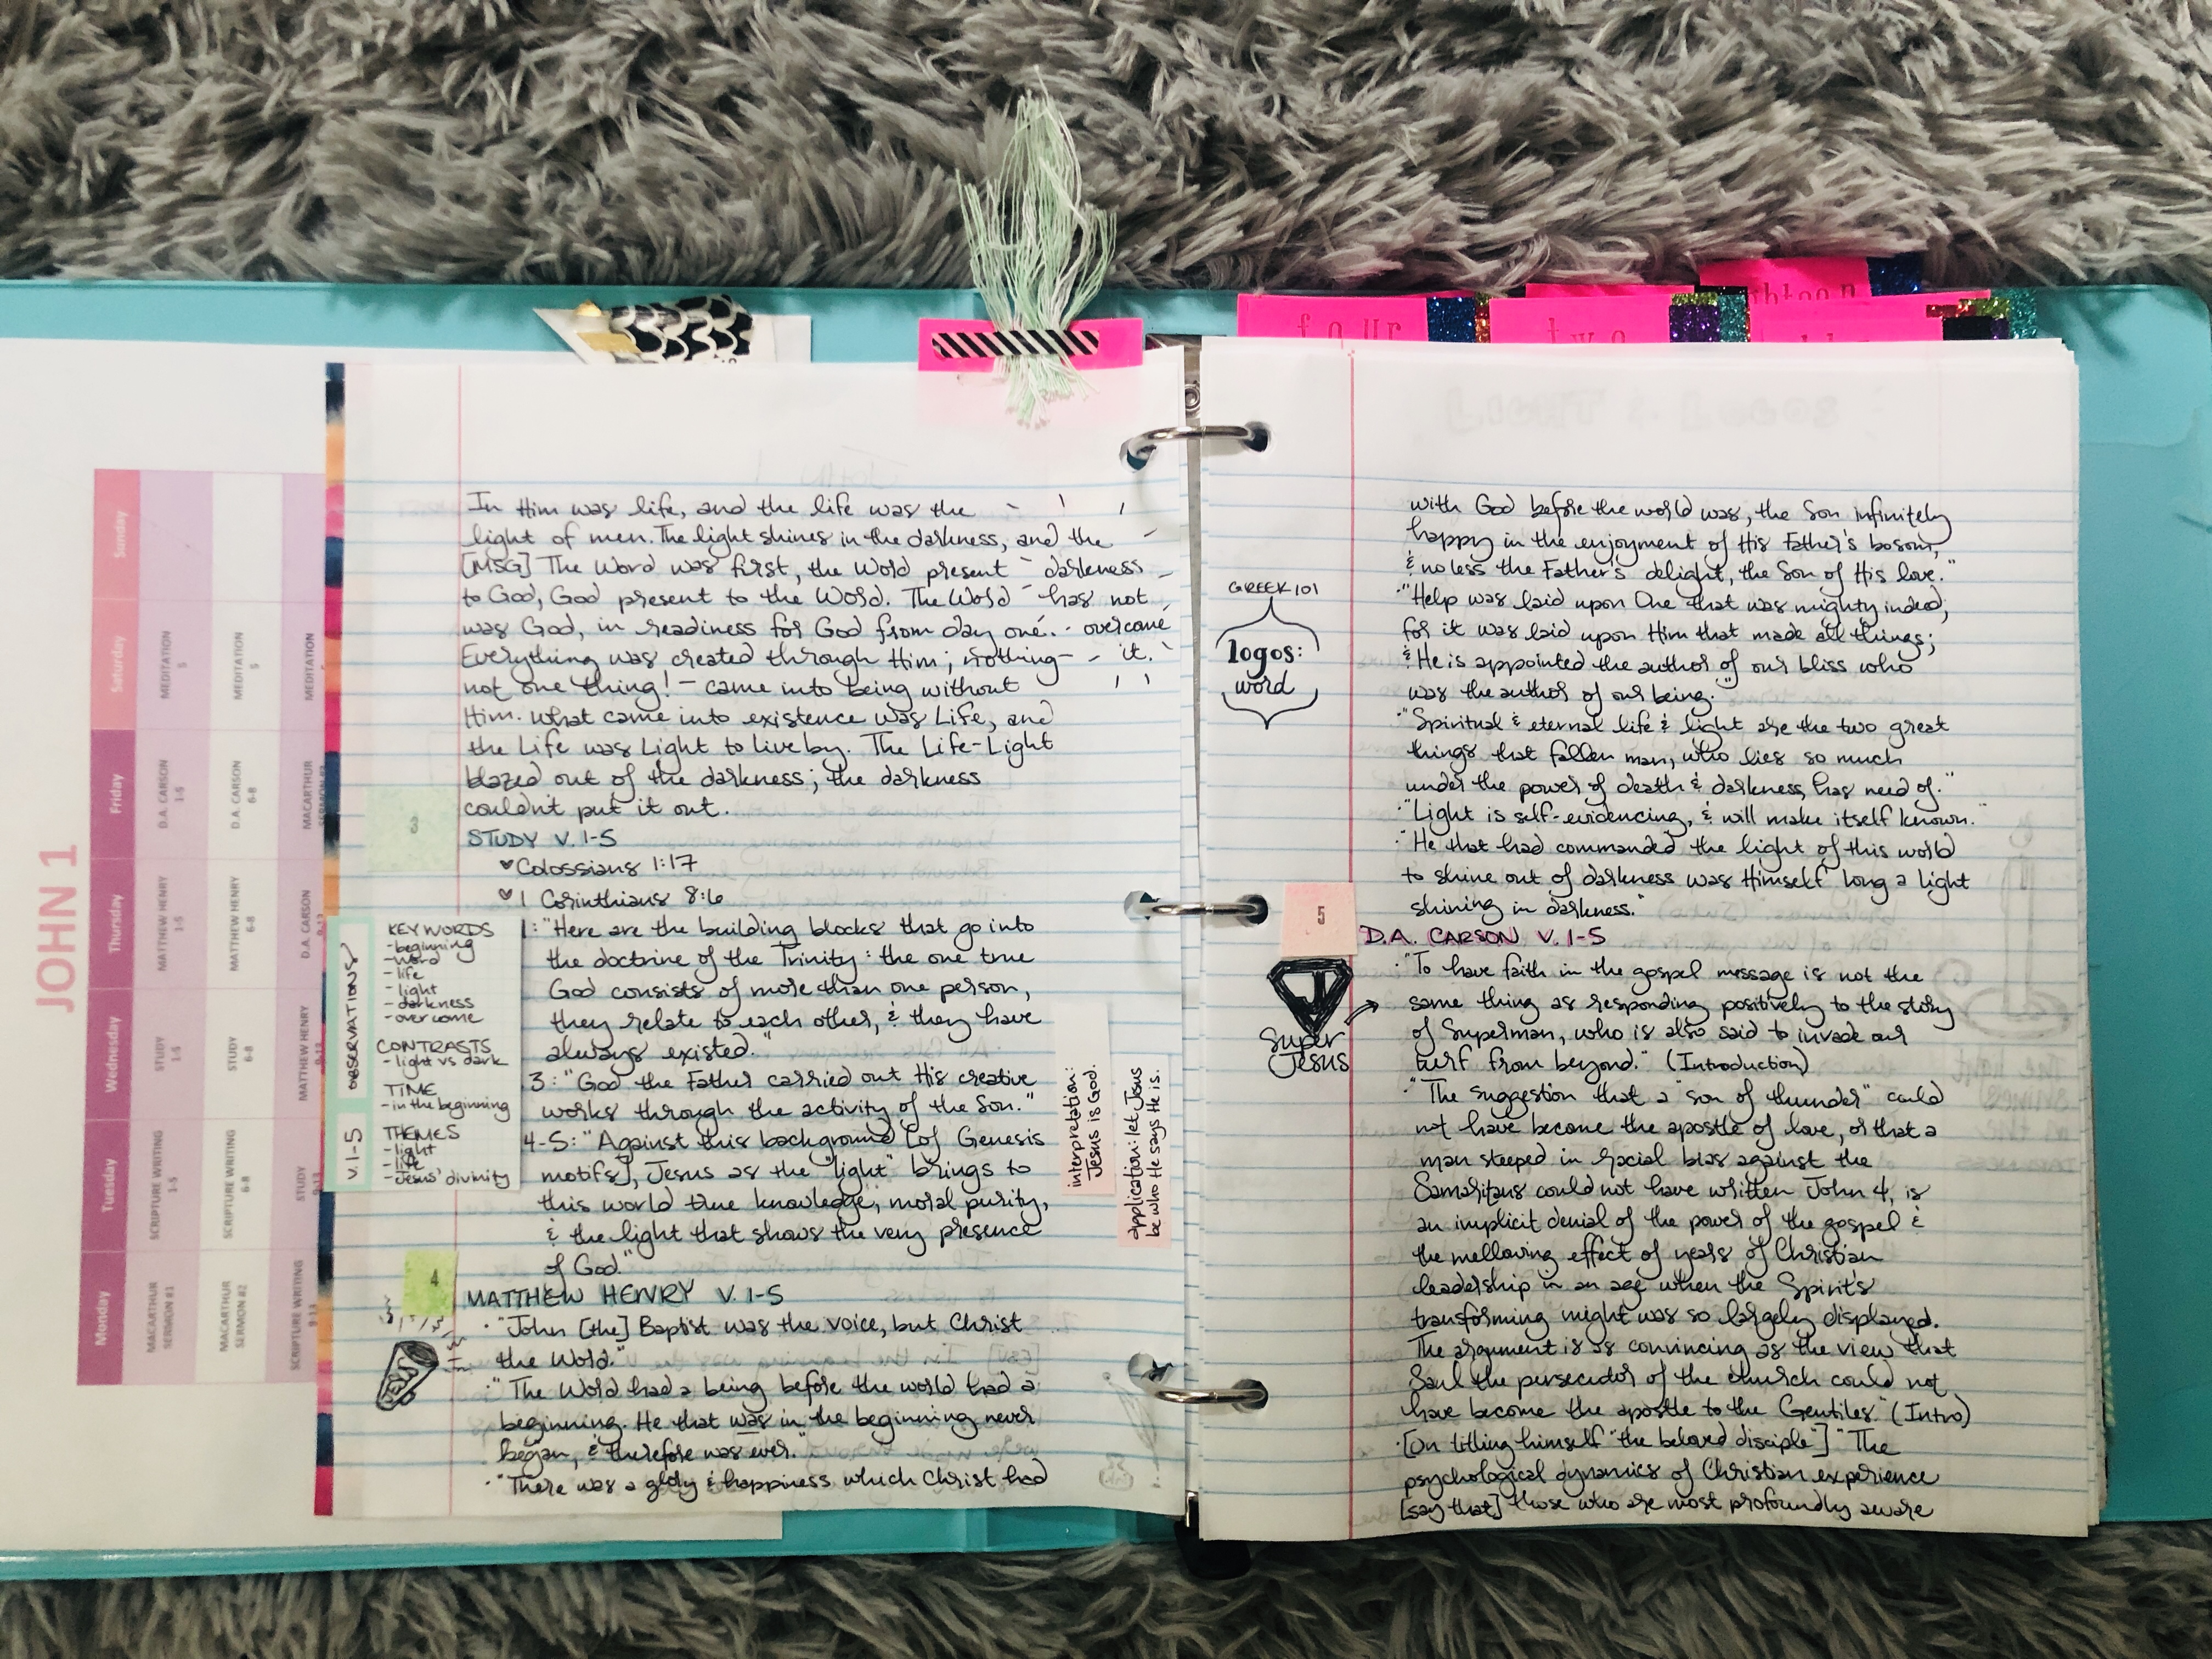 JOHN 1
Sunday
Saturday
MEDITATION
5
MEDITATION
5
MEDITATION
Friday
D.A. CARSON
1-5
D.A. CARSON
6-8
MACARTHUR
Thursday
MATTHEW HENRY
1-5
MATTHEW HENRY
6-8
D.A. CARSON
9-13
Wednesday
STUDY
1-5
STUDY
6-8
MATTHEW HENRY
9-13
Tuesday
SCRIPTURE WRITING
1-5
SCRIPTURE WRITING
6-8
STUDY
9-13
Monday
MACARTHUR
SERMON #1
MACARTHUR
SERMON #2
SCRIPTURE WRITING
9-13
four
two
In Him was life, and the life was the
light of men. The light shines in the darkness, and the
darkness
has not
overcome
it.
[MSG] The Word was first, the Word present
to God, God present to the Word. The Word
was God, in readiness for God from day one.
Everything was created through Him; nothing—
not one thing! — came into being without
Him. What came into existence was Life, and
the Life was Light to live by. The Life-Light
blazed out of the darkness; the darkness
couldn't put it out.
3
STUDY V. 1-5
♥Colossians 1:17
♥1 Corinthians 8:6
1: "Here are the building blocks that go into
the doctrine of the Trinity: the one true
God consists of more than one person,
they relate to each other, & they have
always existed."
3: "God the Father carried out His creative
works through the activity of the Son."
4-5: "Against this background [of Genesis
motifs], Jesus as the "light" brings to
this world true knowledge, moral purity,
& the light that shows the very presence
of God."
OBSERVATIONS
V. 1-5
KEY WORDS
-beginning
-word
-life
-light
-darkness
-overcome
CONTRASTS
-light vs dark
TIME
-in the beginning
THEMES
-light
-life
-Jesus' divinity
interpretation:
Jesus is God.
application: let Jesus
be who He says He is.
4
MATTHEW HENRY V. 1-5
· "John [the] Baptist was the voice, but Christ
the Word."
· "The Word had a being before the world had a
beginning. He that was in the beginning never
began, & therefore was ever."
· "There was a glory & happiness which Christ had
with God before the world was, the Son infinitely
happy in the enjoyment of His Father's bosom,
& no less the Father's delight, the Son of His love."
· "Help was laid upon One that was mighty indeed,
for it was laid upon Him that made all things;
& He is appointed the author of our bliss who
was the author of our being."
· "Spiritual & eternal life & light are the two great
things that fallen man, who lies so much
under the power of death & darkness, has need of."
· "Light is self-evidencing, & will make itself known."
· "He that had commanded the light of this world
to shine out of darkness was Himself long a light
shining in darkness."
GREEK 101
logos:
word
5
D.A. CARSON V. 1-5
J
Super
Jesus
· "To have faith in the gospel message is not the
same thing as responding positively to the story
of Superman, who is also said to invade our
turf from beyond." (Introduction)
· "The suggestion that a "son of thunder" could
not have become the apostle of love, or that a
man steeped in racial bias against the
Samaritans could not have written John 4, is
an implicit denial of the power of the gospel &
the mellowing effect of years of Christian
leadership in an age when the Spirit's
transforming might was so largely displayed.
The argument is as convincing as the view that
Saul the persecutor of the church could not
have become the apostle to the Gentiles." (Intro)
· [On titling himself "the beloved disciple"] "The
psychological dynamics of Christian experience
[say that] those who are most profoundly aware